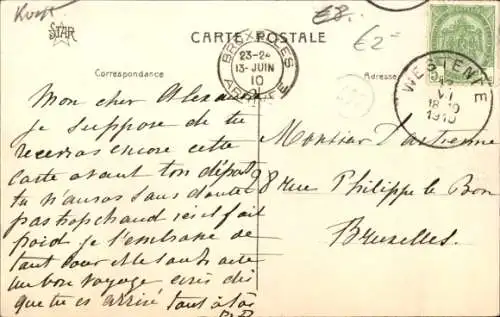 Kust
STAR
CARTE POSTALE
€8-
€2-
BRUXELLES
23-24
13-JUIN
10
ARRIVÉE
WESTENDE
VI
18-19
1910
Correspondance
Adresse
Mon cher
je suppose que tu
recevras encore cette
carte avant ton départ
tu n'auras sans doute
pas trop chaud ici il fait
froid je t'embrasse de
tout cœur et te souhaite
un bon voyage écris dès
que tu es arrivé tout à toi
Monsieur
98 rue Philippe le Bon
Bruxelles.